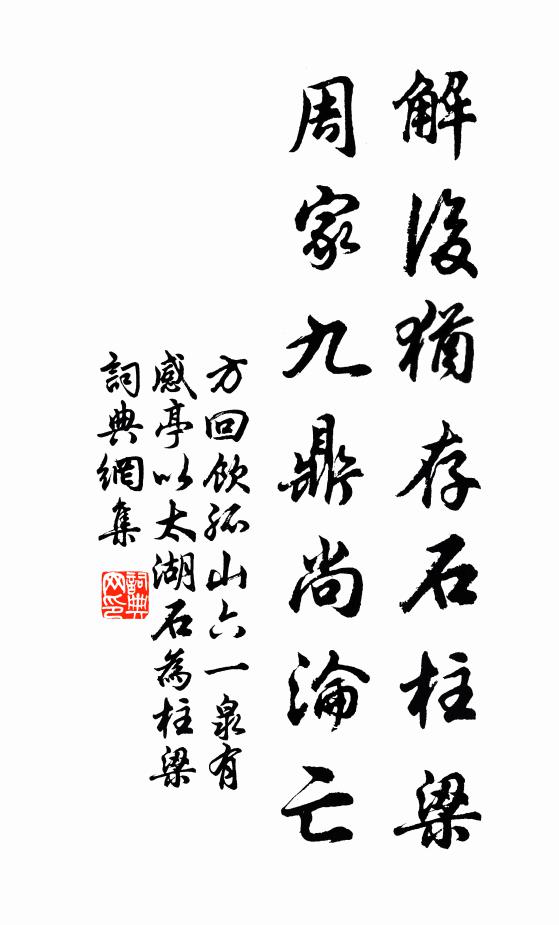 解後猶存石柱梁
周家九鼎尚淪亡
方回飲孤山六一泉有
感亭以太湖石為柱梁
詞典網集
詞典网印